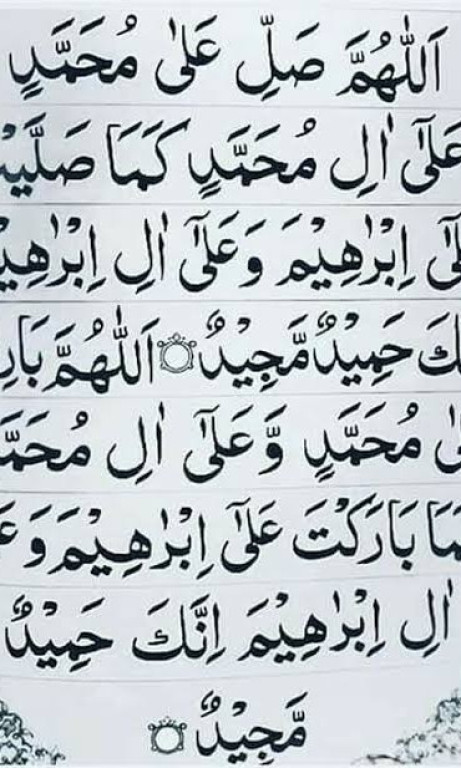 اَللّٰهُمَّ صَلِّ عَلٰى مُحَمَّدٍ
عَلٰٓى اٰلِ مُحَمَّدٍ كَمَا صَلَّيْ
لٰٓى اِبْرٰهِيْمَ وَعَلٰٓى اٰلِ اِبْرٰهِيْ
كَ حَمِيْدٌ مَّجِيْدٌ ۝ اَللّٰهُمَّ بَارِ
لٰى مُحَمَّدٍ وَّ عَلٰٓى اٰلِ مُحَمَّ
مَا بَارَكْتَ عَلٰٓى اِبْرٰهِيْمَ وَ عَ
اٰلِ اِبْرٰهِيْمَ اِنَّكَ حَمِيْدٌ
مَّجِيْدٌ ۝